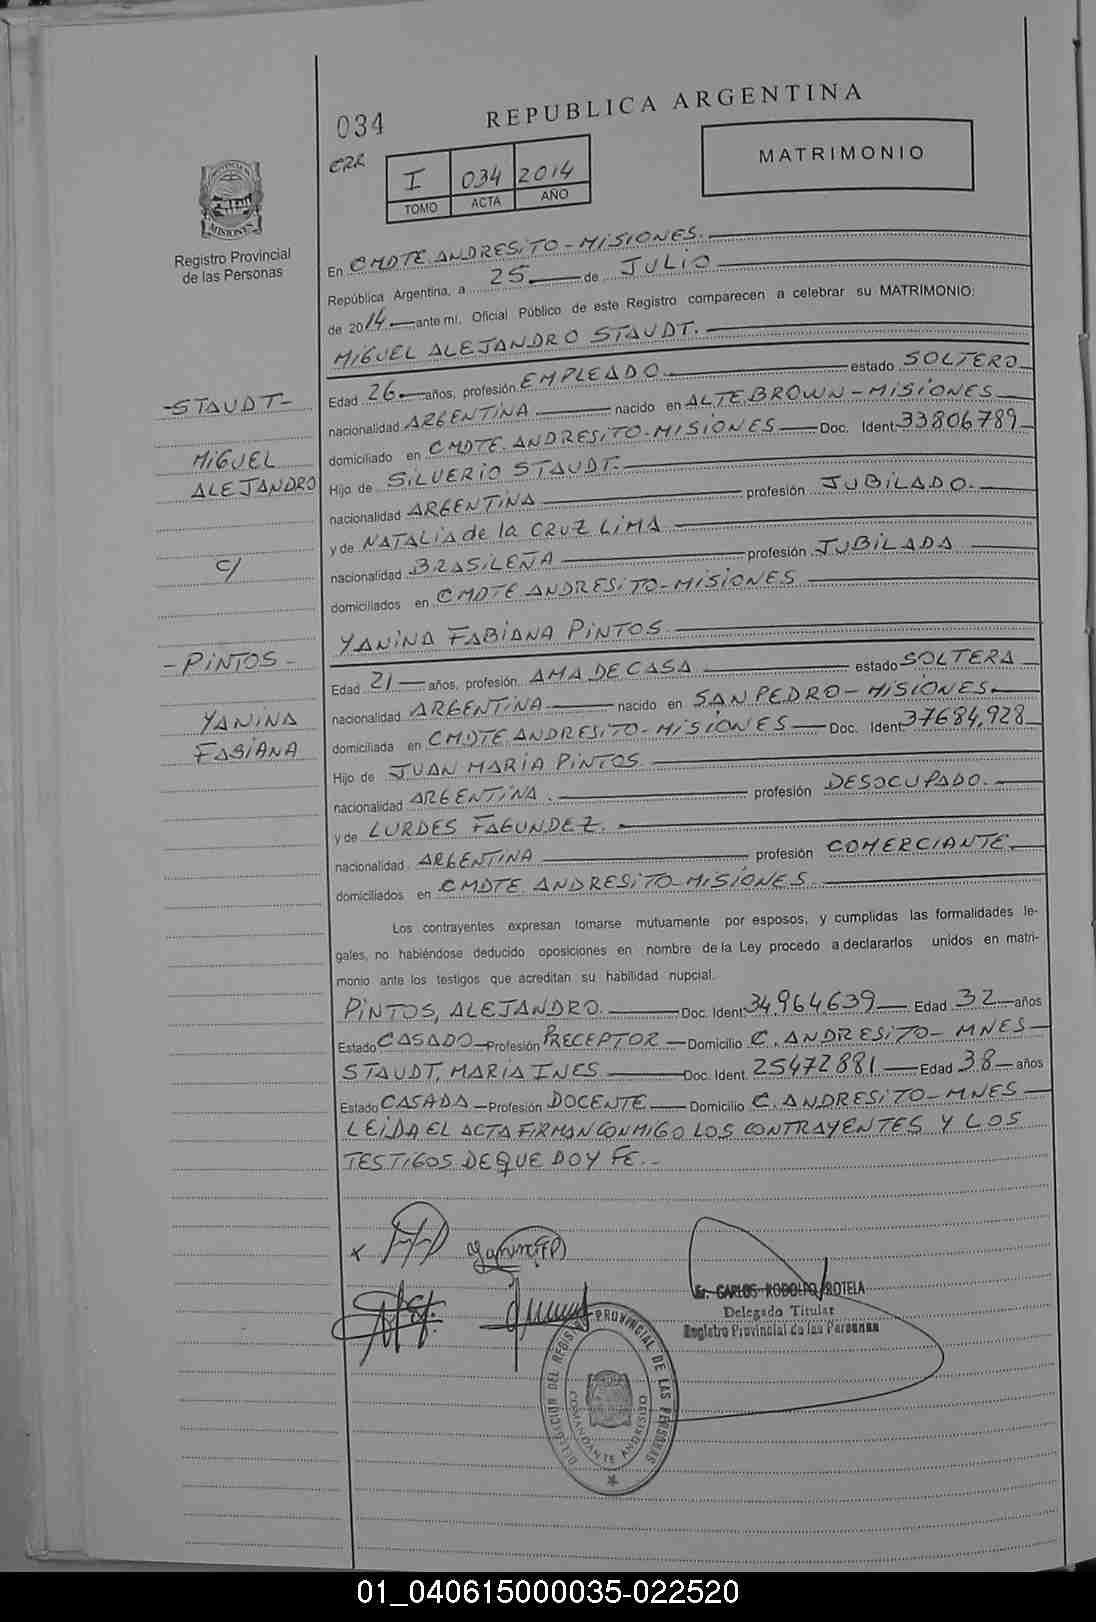 034
REPUBLICA ARGENTINA
CRR
I 034 2014
TOMO ACTA AÑO
MATRIMONIO
PROVINCIA DE MISIONES
Registro Provincial
de las Personas
En CMDTE. ANDRESITO - MISIONES.
República Argentina, a 25 de JULIO
de 2014 ante mí, Oficial Público de este Registro comparecen a celebrar su MATRIMONIO:
MIGUEL ALEJANDRO STAUDT.
Edad 26 años, profesión EMPLEADO. estado SOLTERO
- STAUDT -
nacionalidad ARGENTINA nacido en ALTE BROWN - MISIONES
domiciliado en CMDTE. ANDRESITO - MISIONES Doc. Ident. 33806789
MIGUEL
ALEJANDRO
Hijo de SILVERIO STAUDT.
nacionalidad ARGENTINA profesión JUBILADO.
y de NATALIA de la CRUZ LIMA
nacionalidad BRASILEÑA profesión JUBILADA
C/
domiciliados en CMDTE ANDRESITO - MISIONES
YANINA FABIANA PINTOS.
- PINTOS -
Edad 21 años, profesión AMA DE CASA estado SOLTERA
nacionalidad ARGENTINA nacido en SAN PEDRO - MISIONES
YANINA
FABIANA
domiciliada en CMDTE. ANDRESITO - MISIONES Doc. Ident. 37684.928
Hijo de JUAN MARIA PINTOS
nacionalidad ARGENTINA. profesión DESOCUPADO.
y de LURDES FAGUNDEZ.
nacionalidad ARGENTINA profesión COMERCIANTE.
domiciliados en CMDTE. ANDRESITO - MISIONES.
Los contrayentes expresan tomarse mutuamente por esposos, y cumplidas las formalidades le-
gales, no habiéndose deducido oposiciones en nombre de la Ley procedo a declararlos unidos en matri-
monio ante los testigos que acreditan su habilidad nupcial.
PINTOS, ALEJANDRO. Doc. Ident. 34.964.639 Edad 32 años
Estado CASADO Profesión PRECEPTOR Domicilio C. ANDRESITO - MNES
STAUDT, MARIA INES Doc. Ident. 25472881 Edad 38 años
Estado CASADA Profesión DOCENTE Domicilio C. ANDRESITO - MNES
LEIDA EL ACTA FIRMAN CONMIGO LOS CONTRAYENTES Y LOS
TESTIGOS DE QUE DOY FE.-
Sr. CARLOS RODOLFO ROTELA
Delegado Titular
Registro Provincial de las Personas
DELEGACION DEL REGISTRO PROVINCIAL DE LAS PERSONAS
COMANDANTE ANDRESITO
01_040615000035-022520